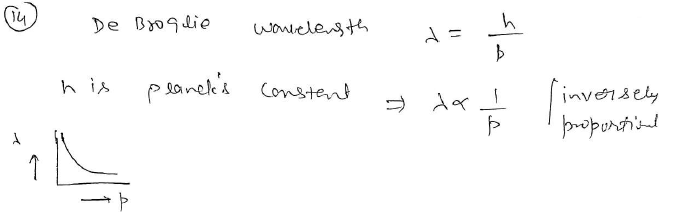 14
De Broglie wavelength λ = h/p
h is planck's constant ⇒ λ ∝ 1/p [inversely proportional
λ ↑
→ p